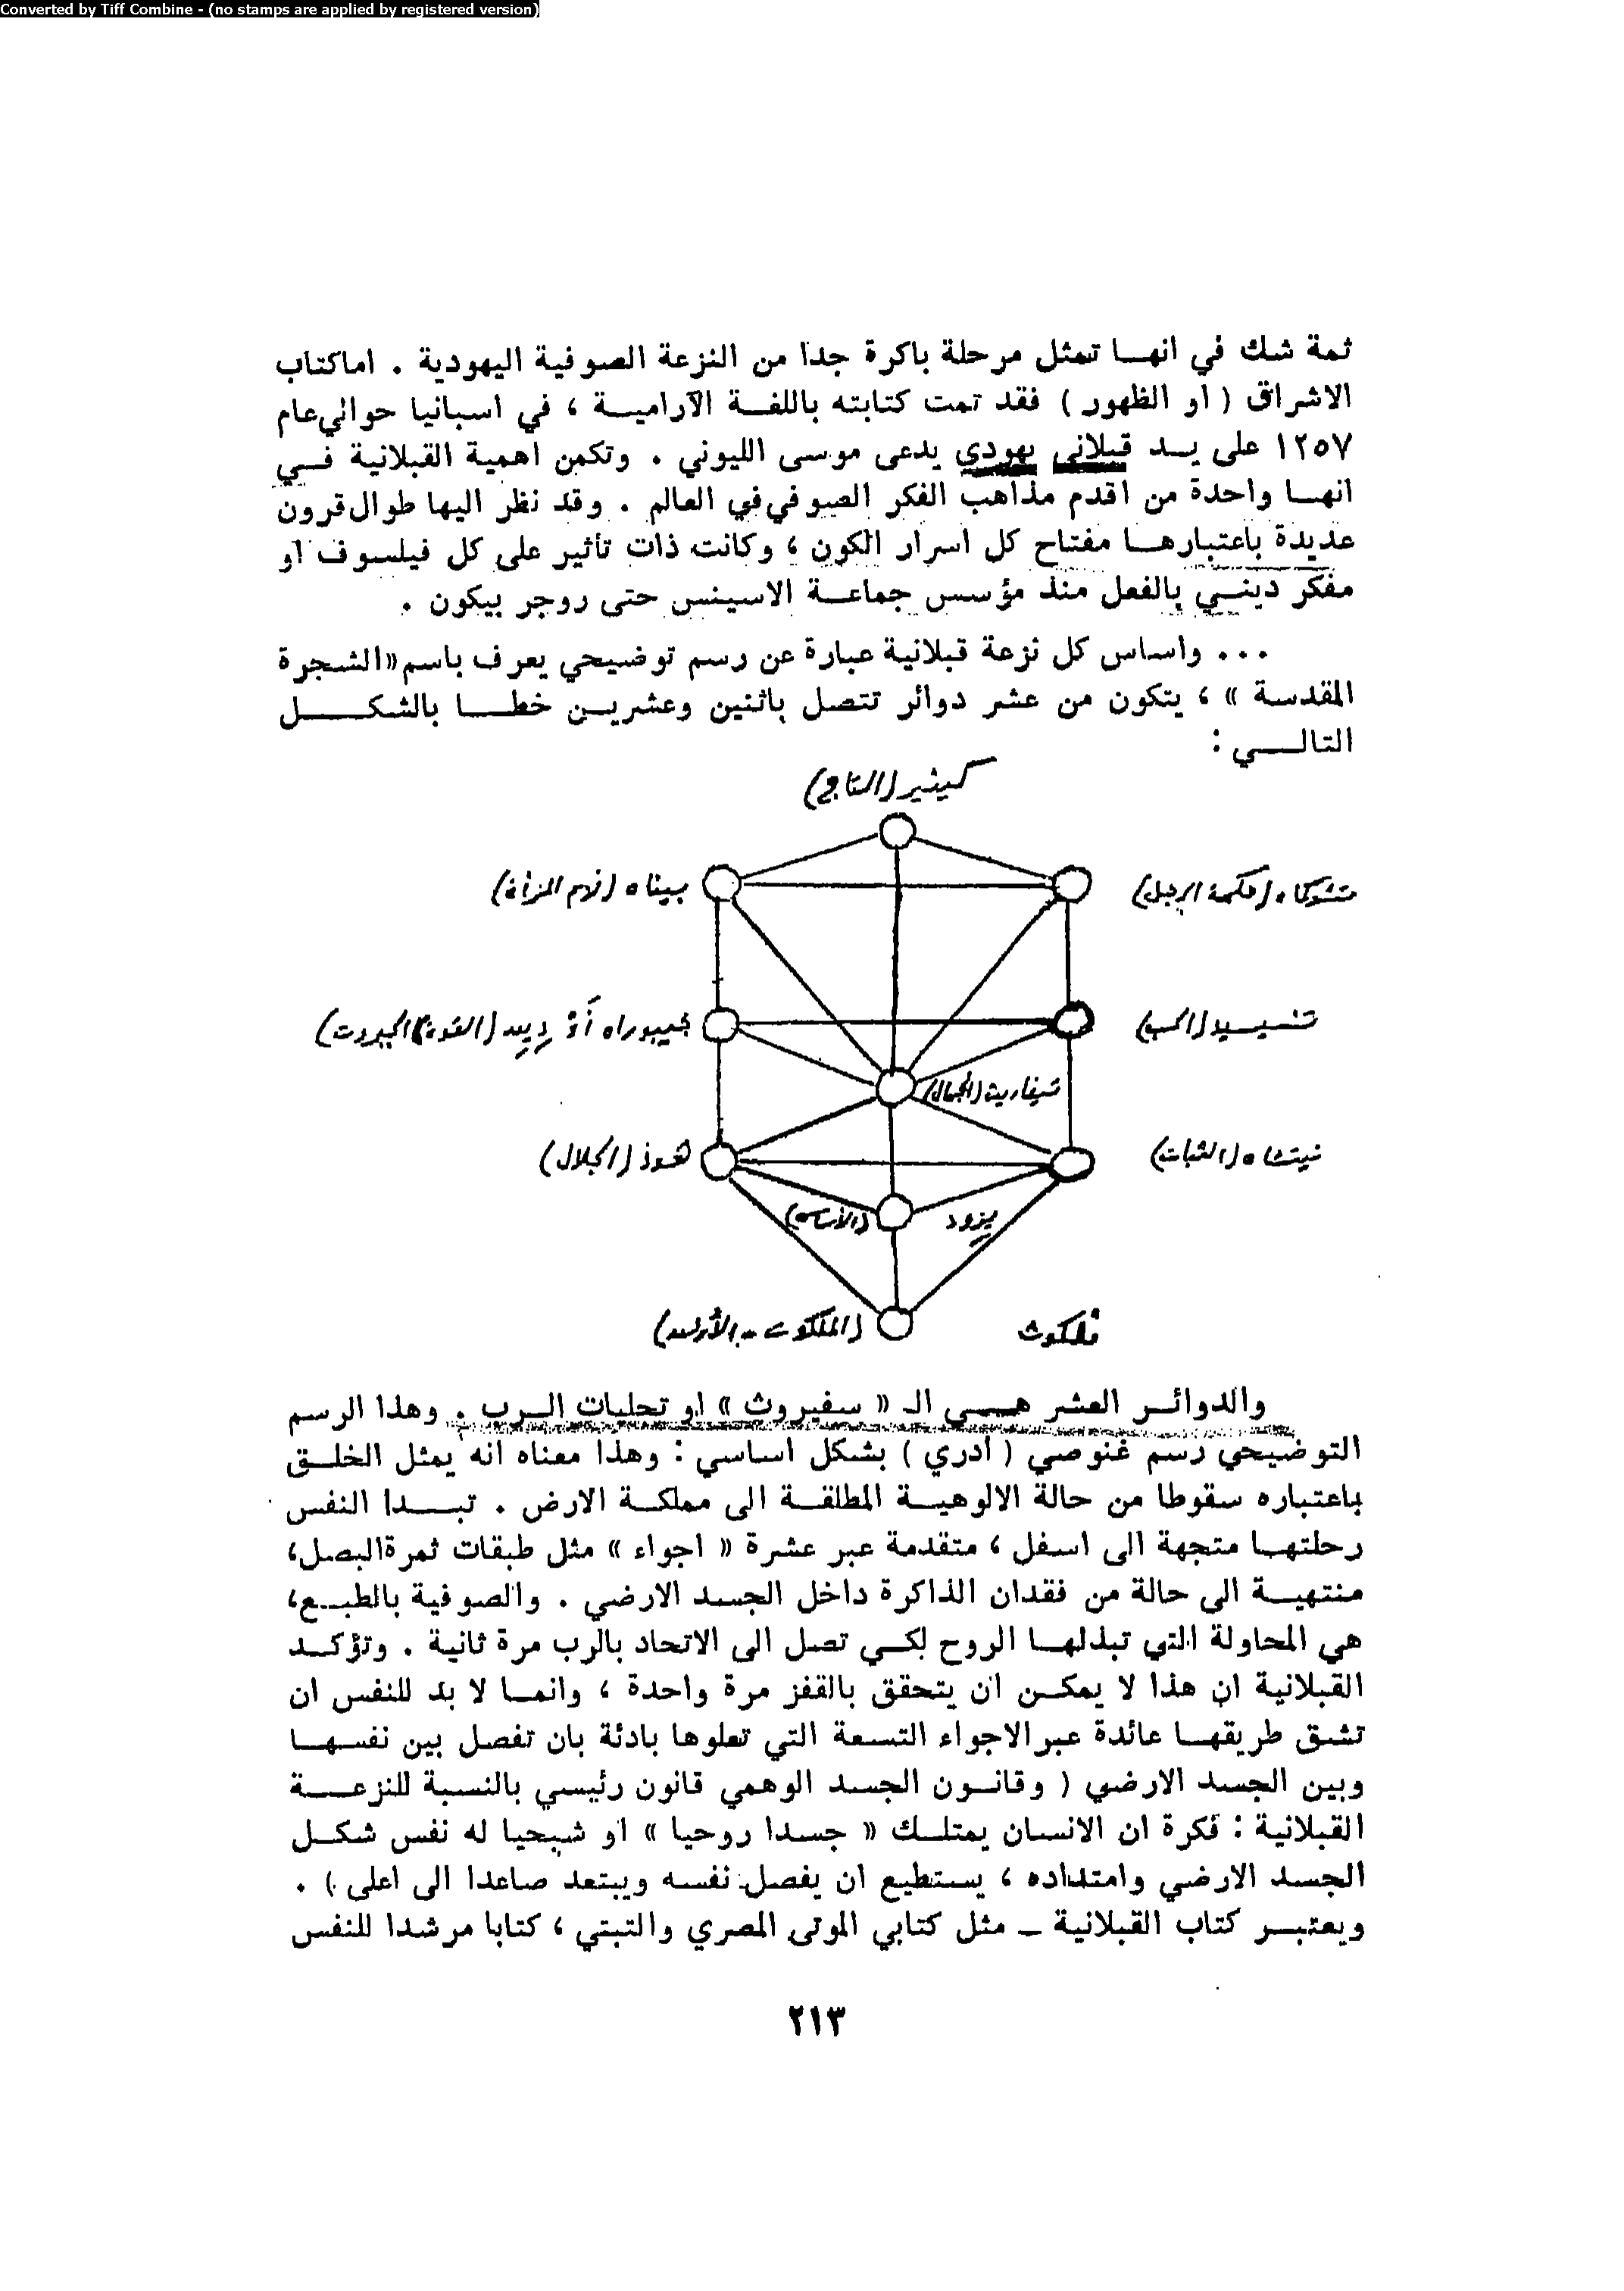 Converted by Tiff Combine - (no stamps are applied by registered version)
ثمة شك في انهـا تمثل مرحلة باكرة جدا من النزعة الصوفية اليهودية . اما كتاب
الاشراق ( او الظهور ) فقد تمت كتابته باللغـة الآراميـة ، في اسبانيا حوالي عام
١٢٥٧ على يـد قبلاني يهودي يدعى موسى الليوني . وتكمن اهمية القبلانية فـي
انهـا واحدة من اقدم مذاهب الفكر الصوفي في العالم . وقد نظر اليها طوال قرون
عديدة باعتبارهـا مفتاح كل اسرار الكون ، وكانت ذات تأثير على كل فيلسوف او
مفكر دينـي بالفعل منذ مؤسس جماعـة الاسينس حتى روجر بيكون .
... واساس كل نزعة قبلانية عبارة عن رسم توضيحي يعرف باسم «الشجرة
المقدسة » ، يتكون من عشر دوائر تتصل باثنين وعشريـن خطـا بالشكـل
التالـي :
كيثير (التاج)
بيناه (فهم المرأة)
(حكمة الرجل)
جيبوراه أو دِيِيد (القوة، الجبروت)
تشيسيد (الحب)
تيفاريت (الجمال)
هود (الجلال)
نيتشاه (الثبات)
(الأساس)
يزود
(الملكوت - الأرض)
ملكوث
والدوائـر العشر هـي الـ « سفيروث » او تجليات الـرب . وهذا الرسم
التوضيحي رسم غنوصي ( أدري ) بشكل اساسي : وهذا معناه انه يمثل الخلـق
باعتباره سقوطا من حالة الالوهيـة المطلقـة الى مملكـة الارض . تبـدا النفس
رحلتهـا متجهة الى اسفل ، متقدمة عبر عشرة « اجواء » مثل طبقات ثمرة البصل،
منتهيـة الى حالة من فقدان الذاكرة داخل الجسد الارضي . والصوفية بالطبـع،
هي المحاولة التي تبذلهـا الروح لكـي تصل الى الاتحاد بالرب مرة ثانية . وتؤكـد
القبلانية ان هذا لا يمكـن ان يتحقق بالقفز مرة واحدة ، وانمـا لا بد للنفس ان
تشق طريقهـا عائدة عبر الاجواء التسعة التي تعلوها بادئة بان تفصل بين نفسهـا
وبين الجسد الارضي ( وقانـون الجسد الوهمي قانون رئيسي بالنسبة للنزعـة
القبلانية : فكرة ان الانسان يمتلـك « جسدا روحيا » او شبحيا له نفس شكـل
الجسد الارضي وامتداده ، يستطيع ان يفصل نفسه ويبتعد صاعدا الى اعلى ) .
ويعتبـر كتاب القبلانية ـ مثل كتابي الموتى المصري والتبتي ، كتابا مرشدا للنفس
٢١٣